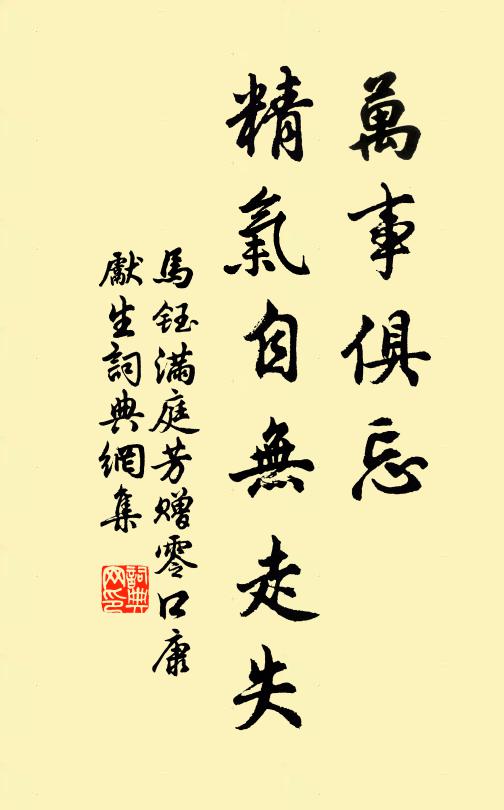 萬事俱忘
精氣自無走失
馬鈺滿庭芳贈零口康
獻生詞典網集
詞典
网印